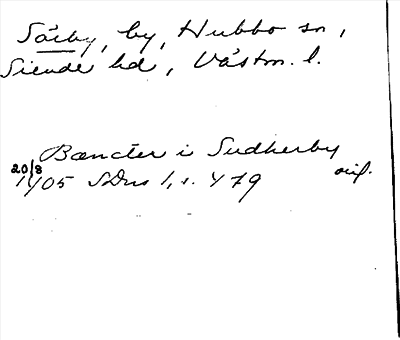 Sörby, by, Hubbo sn,
Siende hd, Västm. l.
Bæncter i Sudherby
20/8 1405 SDns 1, s. 479 orig.